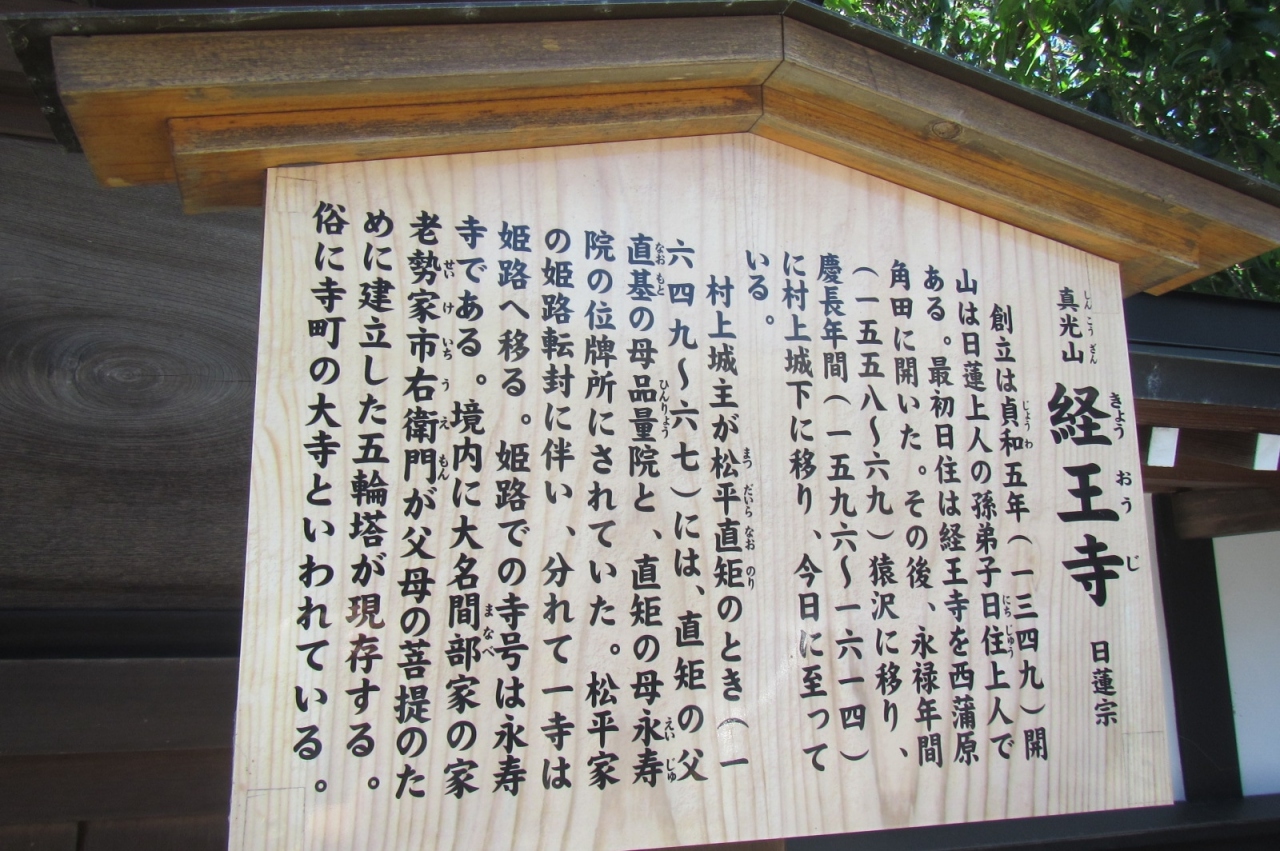 真光山 経王寺 日蓮宗
しんこうざん きょうおうじ
創立は貞和五年（一三四九）開
じょうわ
山は日蓮上人の孫弟子日住上人で
にちじゅう
ある。最初日住は経王寺を西蒲原
角田に開いた。その後、永禄年間
（一五五八〜六九）猿沢に移り、
慶長年間（一五九六〜一六一四）
に村上城下に移り、今日に至って
いる。
村上城主が松平直矩のとき（一
まつだいらなおのり
六四九〜六七）には、直矩の父
直基の母品量院と、直矩の母永寿
なおもと ひんりょう えいじゅ
院の位牌所にされていた。松平家
の姫路転封に伴い、分れて一寺は
姫路へ移る。姫路での寺号は永寿
寺である。境内に大名間部家の家
まなべ
老勢家市右衛門が父母の菩提のた
せいけいちうえもん
めに建立した五輪塔が現存する。
俗に寺町の大寺といわれている。